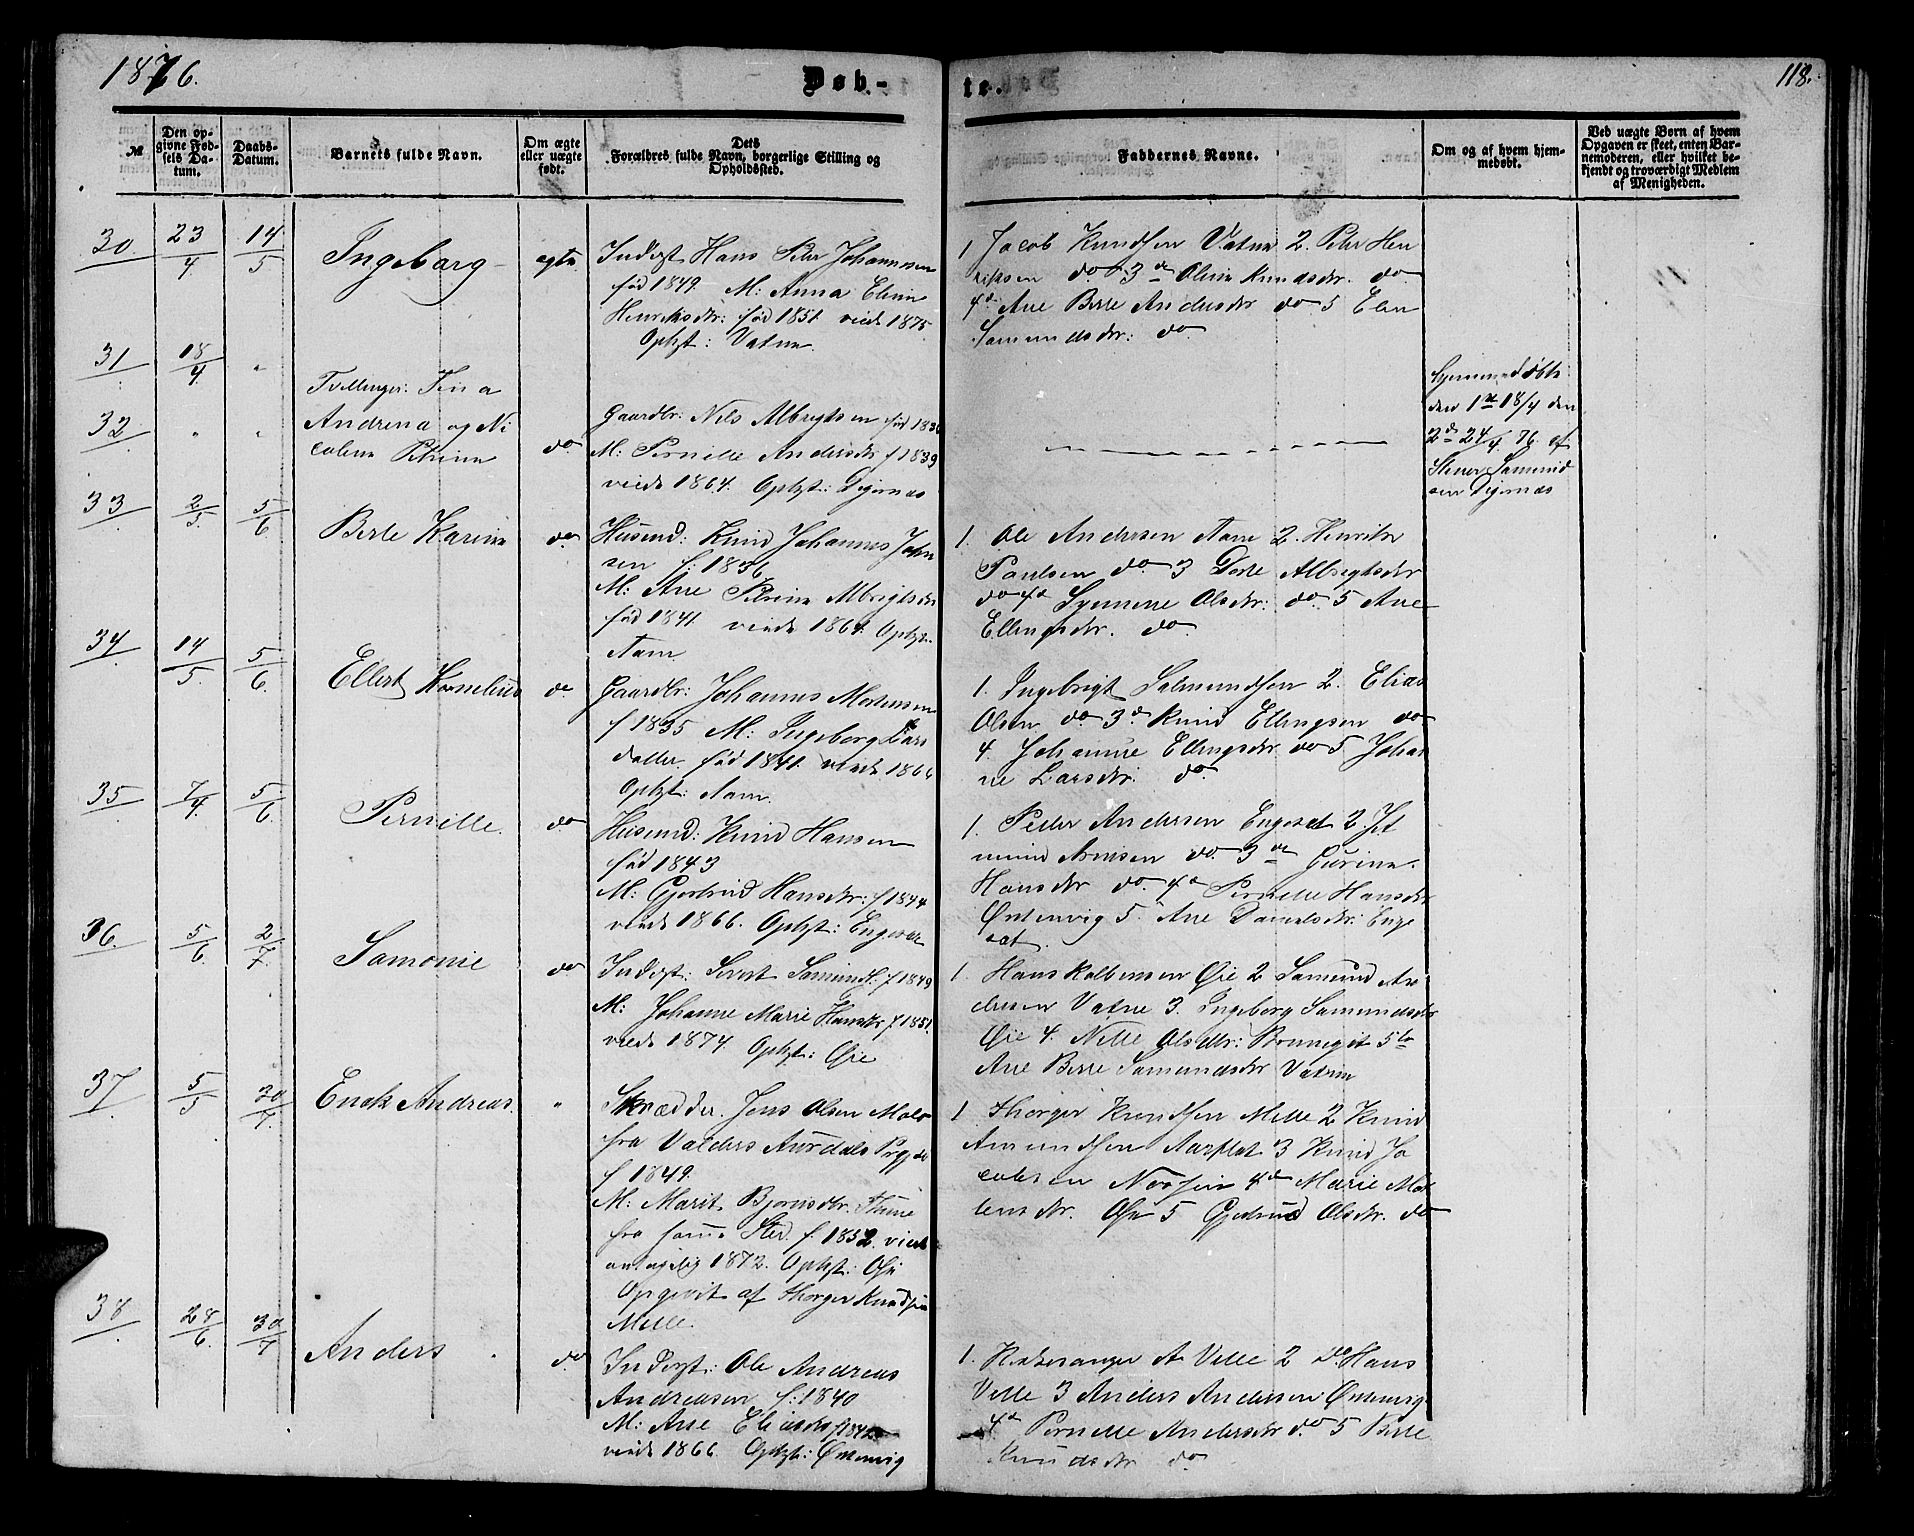 1876.
Døb-
te.
118.
№
Den op-
givne Fød-
sels Da-
tum.
Daabs-
Datum.
Barnets fulde Navn.
Om ægte
eller uægte
født.
Dets
Forældres fulde Navn, borgerlige Stilling og
Opholdssted.
Faddernes Navne.
Om og af hvem hjem-
medøbt.
Ved uægte Børn af hvem
Opgaven er skeet, enten Bar-
nemoderen, eller hvilket be-
kjendt og troværdigt Medlem
af Menigheden.
30
23/4
14/5
Ingeborg
ægte
Inderst Hans Peter Johannesen
fød 1849. M: Anna Eline
Henriksdtr: fød 1851 viede 1875
Ophgt: Vatne
1 Jacob Knudsen Vatne 2. Peter Hen
riksen do 3de Oline Knudsdtr. do
4de Ane Berte Andersdtr do 5 Elen
Samundsdtr: do
31
18/4
"
32
"
"
Tvillinger: Jina
Andrena og Ni
coline Petrine
do
Gaardbr: Nils Albrigtsen fød 1836
M: Pernille Andersdtr f 1839
viede 1864. Ophgt: Digernæs
Hjemmedøbte
den 1ste 18/4 den
2de 24/4 76 af
Samund
sen Digernæs
33
2/5
5/6
Berte Karine
do
Husmd: Knud Johannes John
sen f: 1836
M: Ane Petrine Albrigtsdtr
fød 1841 viede 1864. Ophgt:
Aam
1. Ole Andersen Aam 2. Henrik
Paulsen do 3 Dorte Albrigtsdtr
do 4de Synneve Olsdtr: do 5 Ane
Ellingsdtr. do
34
14/5
5/6
Ellert Kornelius
do
Gaardbr: Johannes Mortensen
f 1835 M: Ingeborg Lars
datter. fød 1841 viede 1866
Ophgt: Aam
1. Ingebrigt Salmundsen 2. Elias
Olsen do 3de Knud Ellingsen do
4. Johanne Ellingsdtr. do 5. Johan
ne Larsdtr. do
35
7/4
5/6
Pernille.
do
Husmd: Knud Hansen
fød 1843
M: Gjertrud Hansdtr: f 1844
viede 1866. Ophgt: Engeset
1. Peder Andersen Engeset 2. Jet
mund Arnesen do 3de Gurine
Hansdtr do. 4de Pernille Hansdtr
Ørstenvig 5. Ane Danielsdtr: Enge
sæt.
36.
5/6
2/7
Samonie
do
Inderst: Sivert Samunds: f 1849
M: Johanne Marie Hansdtr f. 1851.
viede 1874. Ophgt: Øie
1. Hans Kolbensen Øie 2 Samund An
dersen Vatne 3. Ingeborg Samundsdtr
Øie 4. Nille Olsdtr: 5te
Ane Berte Samundsdtr Vatne
37
5/5
30/7
Endk Andreas.
"
Skrædder. Jens Olsen Molo
fra Valders Aurdals Prgjeld
f 1849.
M: Marit Bjørnsdtr. Thune
fra samme Sted. f. 1852. viede
1872. Ophgt: Øye
Opgivet af Thorger Knudsen
Melle.
1 Thorger Knudsen Melle 2 Knud
Amundsen Aarflot 3 Knud Ja
cobsen 4de Marie Mor
tensdtr. Øye 5 Gjertrud Olsdtr. do
38
28/6
30/7
Anders
do
Inderst: Ole Andreas
Andreasen f: 1840
M: Ane Eliasdtr f 1842
viede 1866 Ophgt: Ørstenvig
1. Kirkesanger A Velle 2 do Hans
Velle 3 Anders Andersen Ørstenvig
4de Pernille Andersdtr do 5 Berte
Knudsdtr do